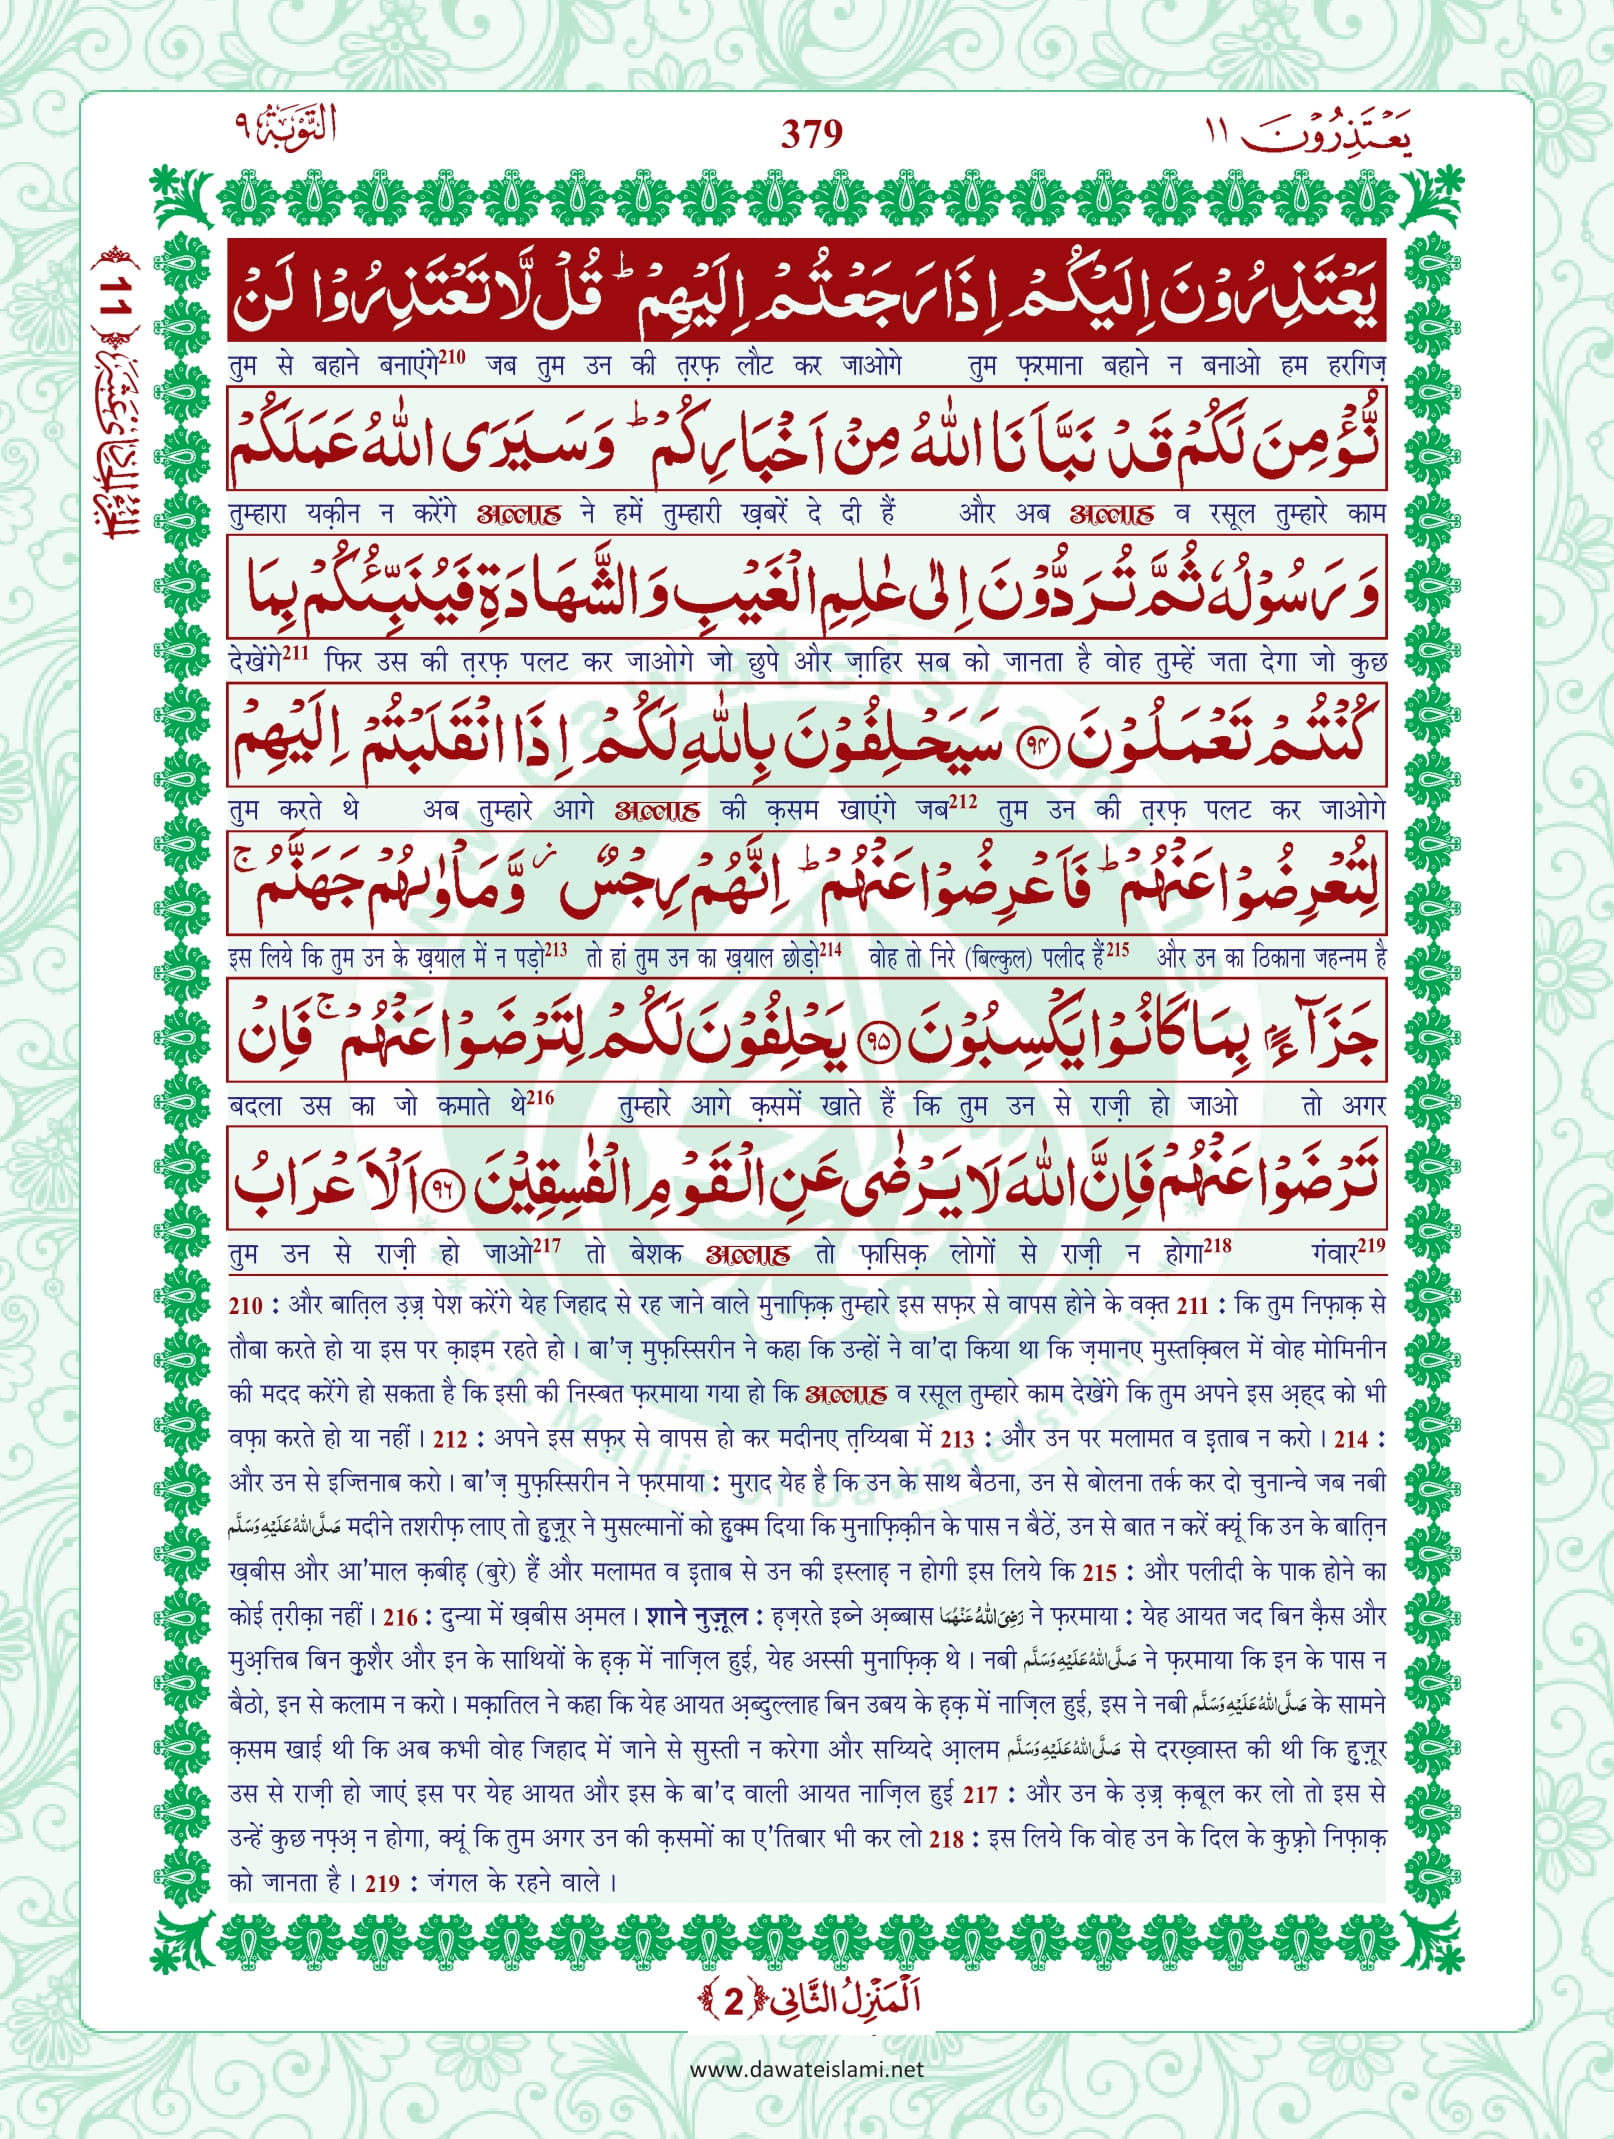 يَعْتَذِرُوْنَ ١١
379
التَّوْبَة ٩
﴿11﴾
يَعْتَذِرُوْنَ اِلَيْكُمْ اِذَا رَجَعْتُمْ اِلَيْهِمْ ؕ قُلْ لَّا تَعْتَذِرُوْا لَنْ
तुम से बहाने बनाएंगे210 जब तुम उन की त़रफ़ लौट कर जाओगे तुम फ़रमाना बहाने न बनाओ हम हरगिज़
نُّؤْمِنَ لَكُمْ قَدْ نَبَّاَنَا اللّٰهُ مِنْ اَخْبَارِكُمْ ؕ وَسَيَرَى اللّٰهُ عَمَلَكُمْ
तुम्हारा यक़ीन न करेंगे अल्लाह ने हमें तुम्हारी ख़बरें दे दी हैं और अब अल्लाह व रसूल तुम्हारे काम
وَرَسُوْلُهٗ ثُمَّ تُرَدُّوْنَ اِلٰى عٰلِمِ الْغَيْبِ وَالشَّهَادَةِ فَيُنَبِّئُكُمْ بِمَا
देखेंगे211 फिर उस की त़रफ़ पलट कर जाओगे जो छुपे और ज़ाहिर सब को जानता है वोह तुम्हें जता देगा जो कुछ
كُنْتُمْ تَعْمَلُوْنَ ﴿۹۴﴾ سَيَحْلِفُوْنَ بِاللّٰهِ لَكُمْ اِذَا انْقَلَبْتُمْ اِلَيْهِمْ
तुम करते थे अब तुम्हारे आगे अल्लाह की क़सम खाएंगे जब212 तुम उन की त़रफ़ पलट कर जाओगे
لِتُعْرِضُوْا عَنْهُمْ ؕ فَاَعْرِضُوْا عَنْهُمْ ؕ اِنَّهُمْ رِجْسٌ ز وَّمَاْوٰىهُمْ جَهَنَّمُ ۚ
इस लिये कि तुम उन के ख़याल में न पड़ो213 तो हां तुम उन का ख़याल छोड़ो214 वोह तो निरे (बिल्कुल) पलीद हैं215 और उन का ठिकाना जहन्नम है
جَزَآءًۢ بِمَا كَانُوْا يَكْسِبُوْنَ ﴿۹۵﴾ يَحْلِفُوْنَ لَكُمْ لِتَرْضَوْا عَنْهُمْ ۚ فَاِنْ
बदला उस का जो कमाते थे216 तुम्हारे आगे क़समें खाते हैं कि तुम उन से राज़ी हो जाओ तो अगर
تَرْضَوْا عَنْهُمْ فَاِنَّ اللّٰهَ لَا يَرْضٰى عَنِ الْقَوْمِ الْفٰسِقِيْنَ ﴿۹۶﴾ اَلْاَعْرَابُ
तुम उन से राज़ी हो जाओ217 तो बेशक अल्लाह तो फ़ासिक़ लोगों से राज़ी न होगा218 गंवार219
210 : और बात़िल उ़ज़्र पेश करेंगे येह जिहाद से रह जाने वाले मुनाफ़िक़ तुम्हारे इस सफ़र से वापस होने के वक़्त 211 : कि तुम निफ़ाक़ से
तौबा करते हो या इस पर क़ाइम रहते हो । बा'ज़ मुफ़स्सिरीन ने कहा कि उन्हों ने वा'दा किया था कि ज़मानए मुस्तक़्बिल में वोह मोमिनीन
की मदद करेंगे हो सकता है कि इसी की निस्बत फ़रमाया गया हो कि अल्लाह व रसूल तुम्हारे काम देखेंगे कि तुम अपने इस अ़ह्द को भी
वफ़ा करते हो या नहीं । 212 : अपने इस सफ़र से वापस हो कर मदीनए त़य्यिबा में 213 : और उन पर मलामत व इताब न करो । 214 :
और उन से इज्तिनाब करो । बा'ज़ मुफ़स्सिरीन ने फ़रमाया : मुराद येह है कि उन के साथ बैठना, उन से बोलना तर्क कर दो चुनान्चे जब नबी
صَلَّى اللهُ عَلَيْهِ وَسَلَّم मदीने तशरीफ़ लाए तो हुज़ूर ने मुसल्मानों को हुक्म दिया कि मुनाफ़िक़ीन के पास न बैठें, उन से बात न करें क्यूं कि उन के बात़िन
ख़बीस और आ'माल क़बीह़ (बुरे) हैं और मलामत व इ़ताब से उन की इस्लाह़ न होगी इस लिये कि 215 : और पलीदी के पाक होने का
कोई त़रीक़ा नहीं । 216 : दुन्या में ख़बीस अ़मल । शाने नुज़ूल : ह़ज़रते इब्ने अ़ब्बास رَضِىَ اللهُ عَنْهُمَا ने फ़रमाया : येह आयत जद बिन क़ैस और
मुअ़त्तिब बिन कुशैर और इन के साथियों के ह़क़ में नाज़िल हुई, येह अस्सी मुनाफ़िक़ थे । नबी صَلَّى اللهُ عَلَيْهِ وَسَلَّم ने फ़रमाया कि इन के पास न
बैठो, इन से कलाम न करो । मक़ातिल ने कहा कि येह आयत अ़ब्दुल्लाह बिन उबय के ह़क़ में नाज़िल हुई, इस ने नबी صَلَّى اللهُ عَلَيْهِ وَسَلَّم के सामने
क़सम खाई थी कि अब कभी वोह जिहाद में जाने से सुस्ती न करेगा और सय्यिदे आ़लम صَلَّى اللهُ عَلَيْهِ وَسَلَّم से दरख़्वास्त की थी कि हुज़ूर
उस से राज़ी हो जाएं इस पर येह आयत और इस के बा'द वाली आयत नाज़िल हुई 217 : और उन के उ़ज़्र क़बूल कर लो तो इस से
उन्हें कुछ नफ़्अ़ न होगा, क्यूं कि तुम अगर उन की क़समों का ए'तिबार भी कर लो 218 : इस लिये कि वोह उन के दिल के कुफ़्रो निफ़ाक़
को जानता है । 219 : जंगल के रहने वाले ।
اَلْمَنْزِلُ الثَّانِى ﴿2﴾
www.dawateislami.net